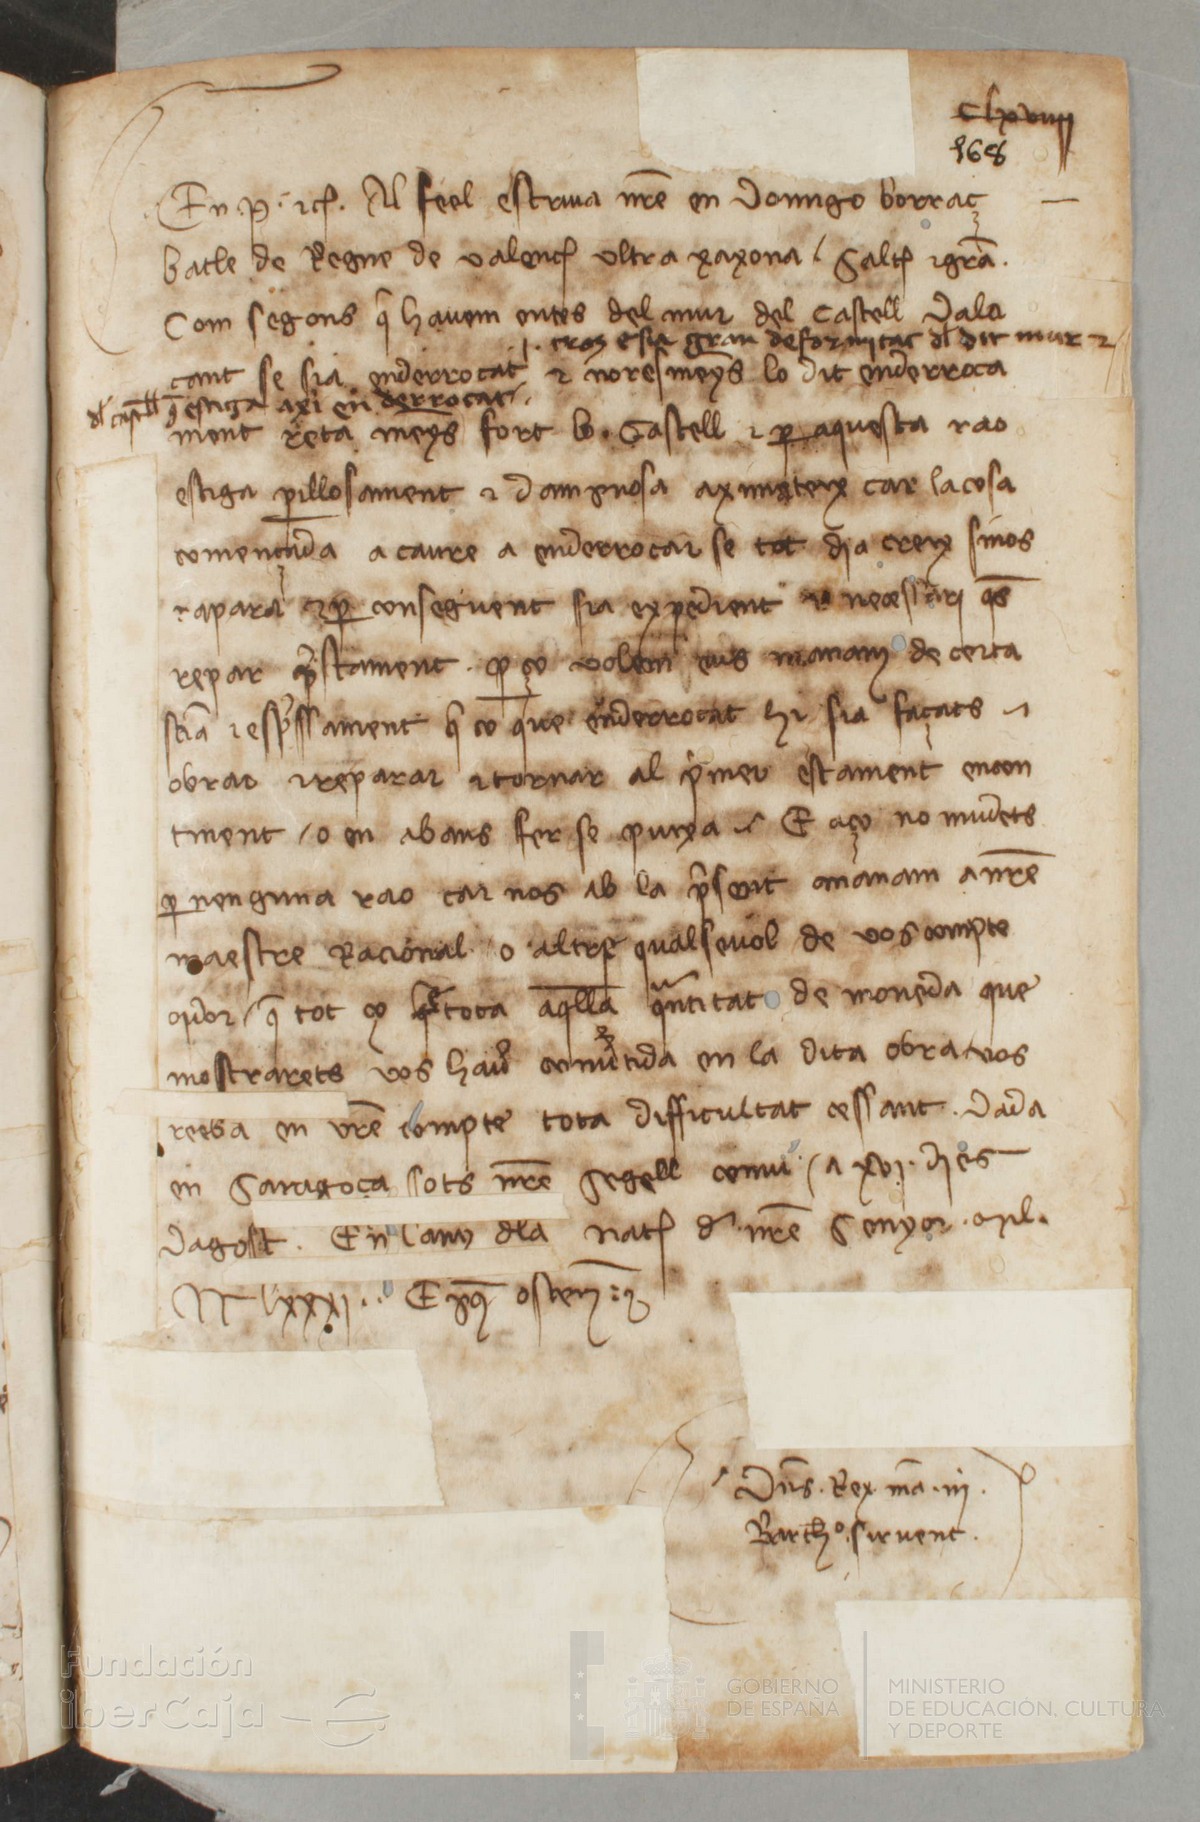 clxviiij
168
En .P. etc̃. Al feel escriva nr̃e en Domingo borraç
batle de Regne de valenc̃ ultra xaxona / Salut̃ et grã.
Com segons q̃ havem entes del mur del Castell Dala
cros e sia gran deformitat dl dit mur et
cant se sia enderrocat et nores meys lo dit enderroca
dl castell q̃ estiga axi en derrocat
ment reta meys fort lo Castell et p aquesta rao
estiga perillosament et dampnosa axi mateix car la cosa
començada a caure a enderrocar se tot dia creix sinos
repara et p conseguent sia expedient et necessari q̃s
repar p̃stament. p ço volem eus manam de certa
sciã et esp̃ssament q̃ ço que enderrocat hi sia façats
obrar et reparar et tornar al p̃mer estament encon
tinent / o en abans fer se puxa. E aço no mudets
p nenguna rao car nos ab la p̃sent manam a nr̃e
maestre Racional o altre qualsevol de vos compte
oydor / q̃ tot ço toda aq̃lla q̃ntitat de moneda que
mostrarets vos haver convertida en la dita obra vos
reeba en vr̃e compte tota difficultat cessant. Dada
en Saragoça sots nr̃e segell comu / a xvi. dies
Dagost. En lany dla nat̃ d nr̃e Senyor. Mil.
lxxxi.
Dñs. Rex mã. m̃.
Barthº. sirvent.
Fundación
iberCaja
GOBIERNO
DE ESPAÑA
MINISTERIO
DE EDUCACIÓN, CULTURA
Y DEPORTE